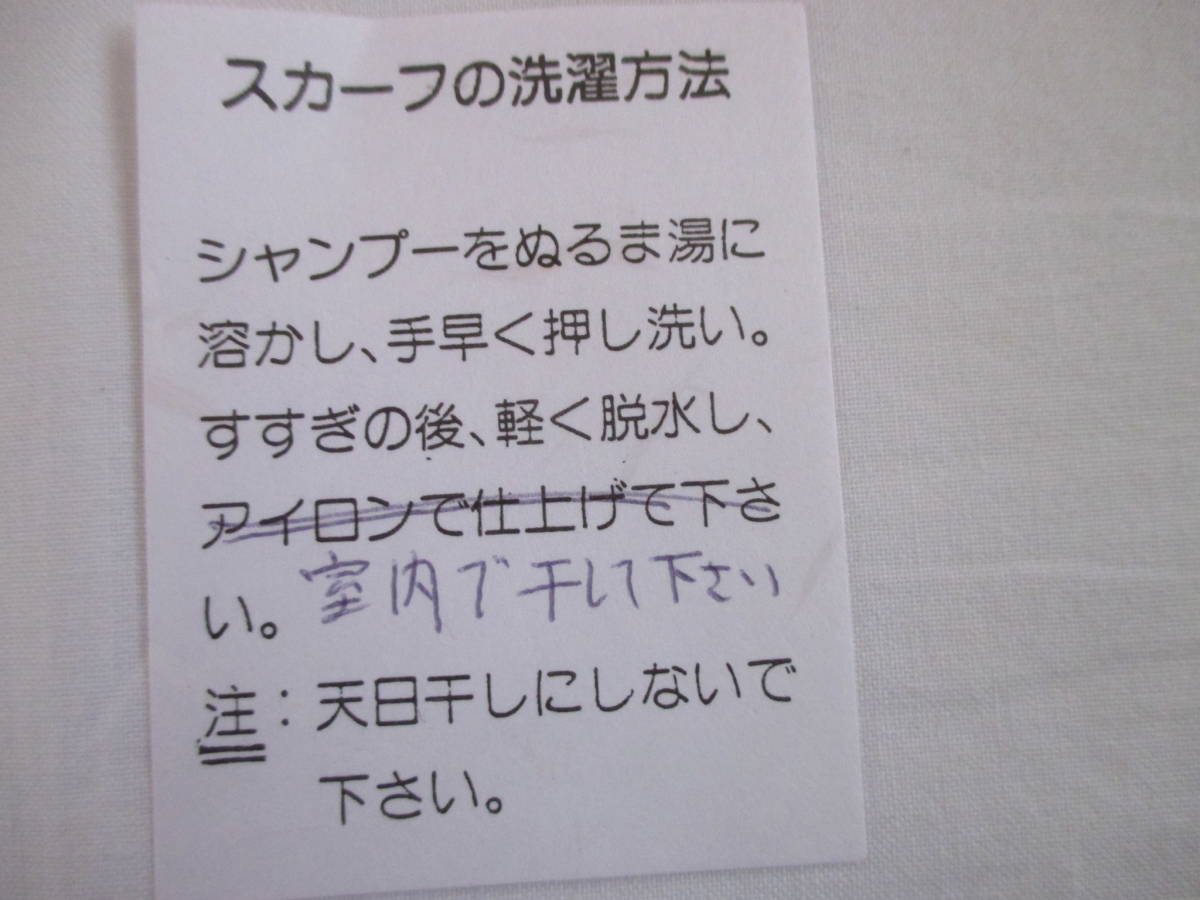 スカーフの洗濯方法
シャンプーをぬるま湯に
溶かし、手早く押し洗い。
すすぎの後、軽く脱水し、
アイロンで仕上げて下さ
い。室内で干して下さい
注：天日干しにしないで
下さい。